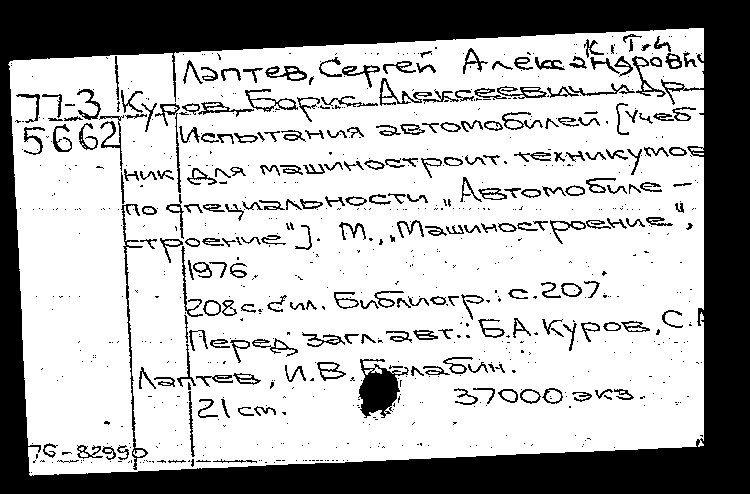 к.т.н
Лаптев, Сергей Александрович
77-3 Куров, Борис Алексеевич и др
5662 Испытания автомобилей. [Учеб-
ник для машиностроит. техникумов
по специальности „Автомобиле-
строение"]. М., „Машиностроение",
1976.
208 с. с ил. Библиогр.: с. 207.
Перед загл. авт.: Б.А. Куров, С.А
Лаптев, И.В. Балабин.
21 cm. 37000 экз.
76-82990